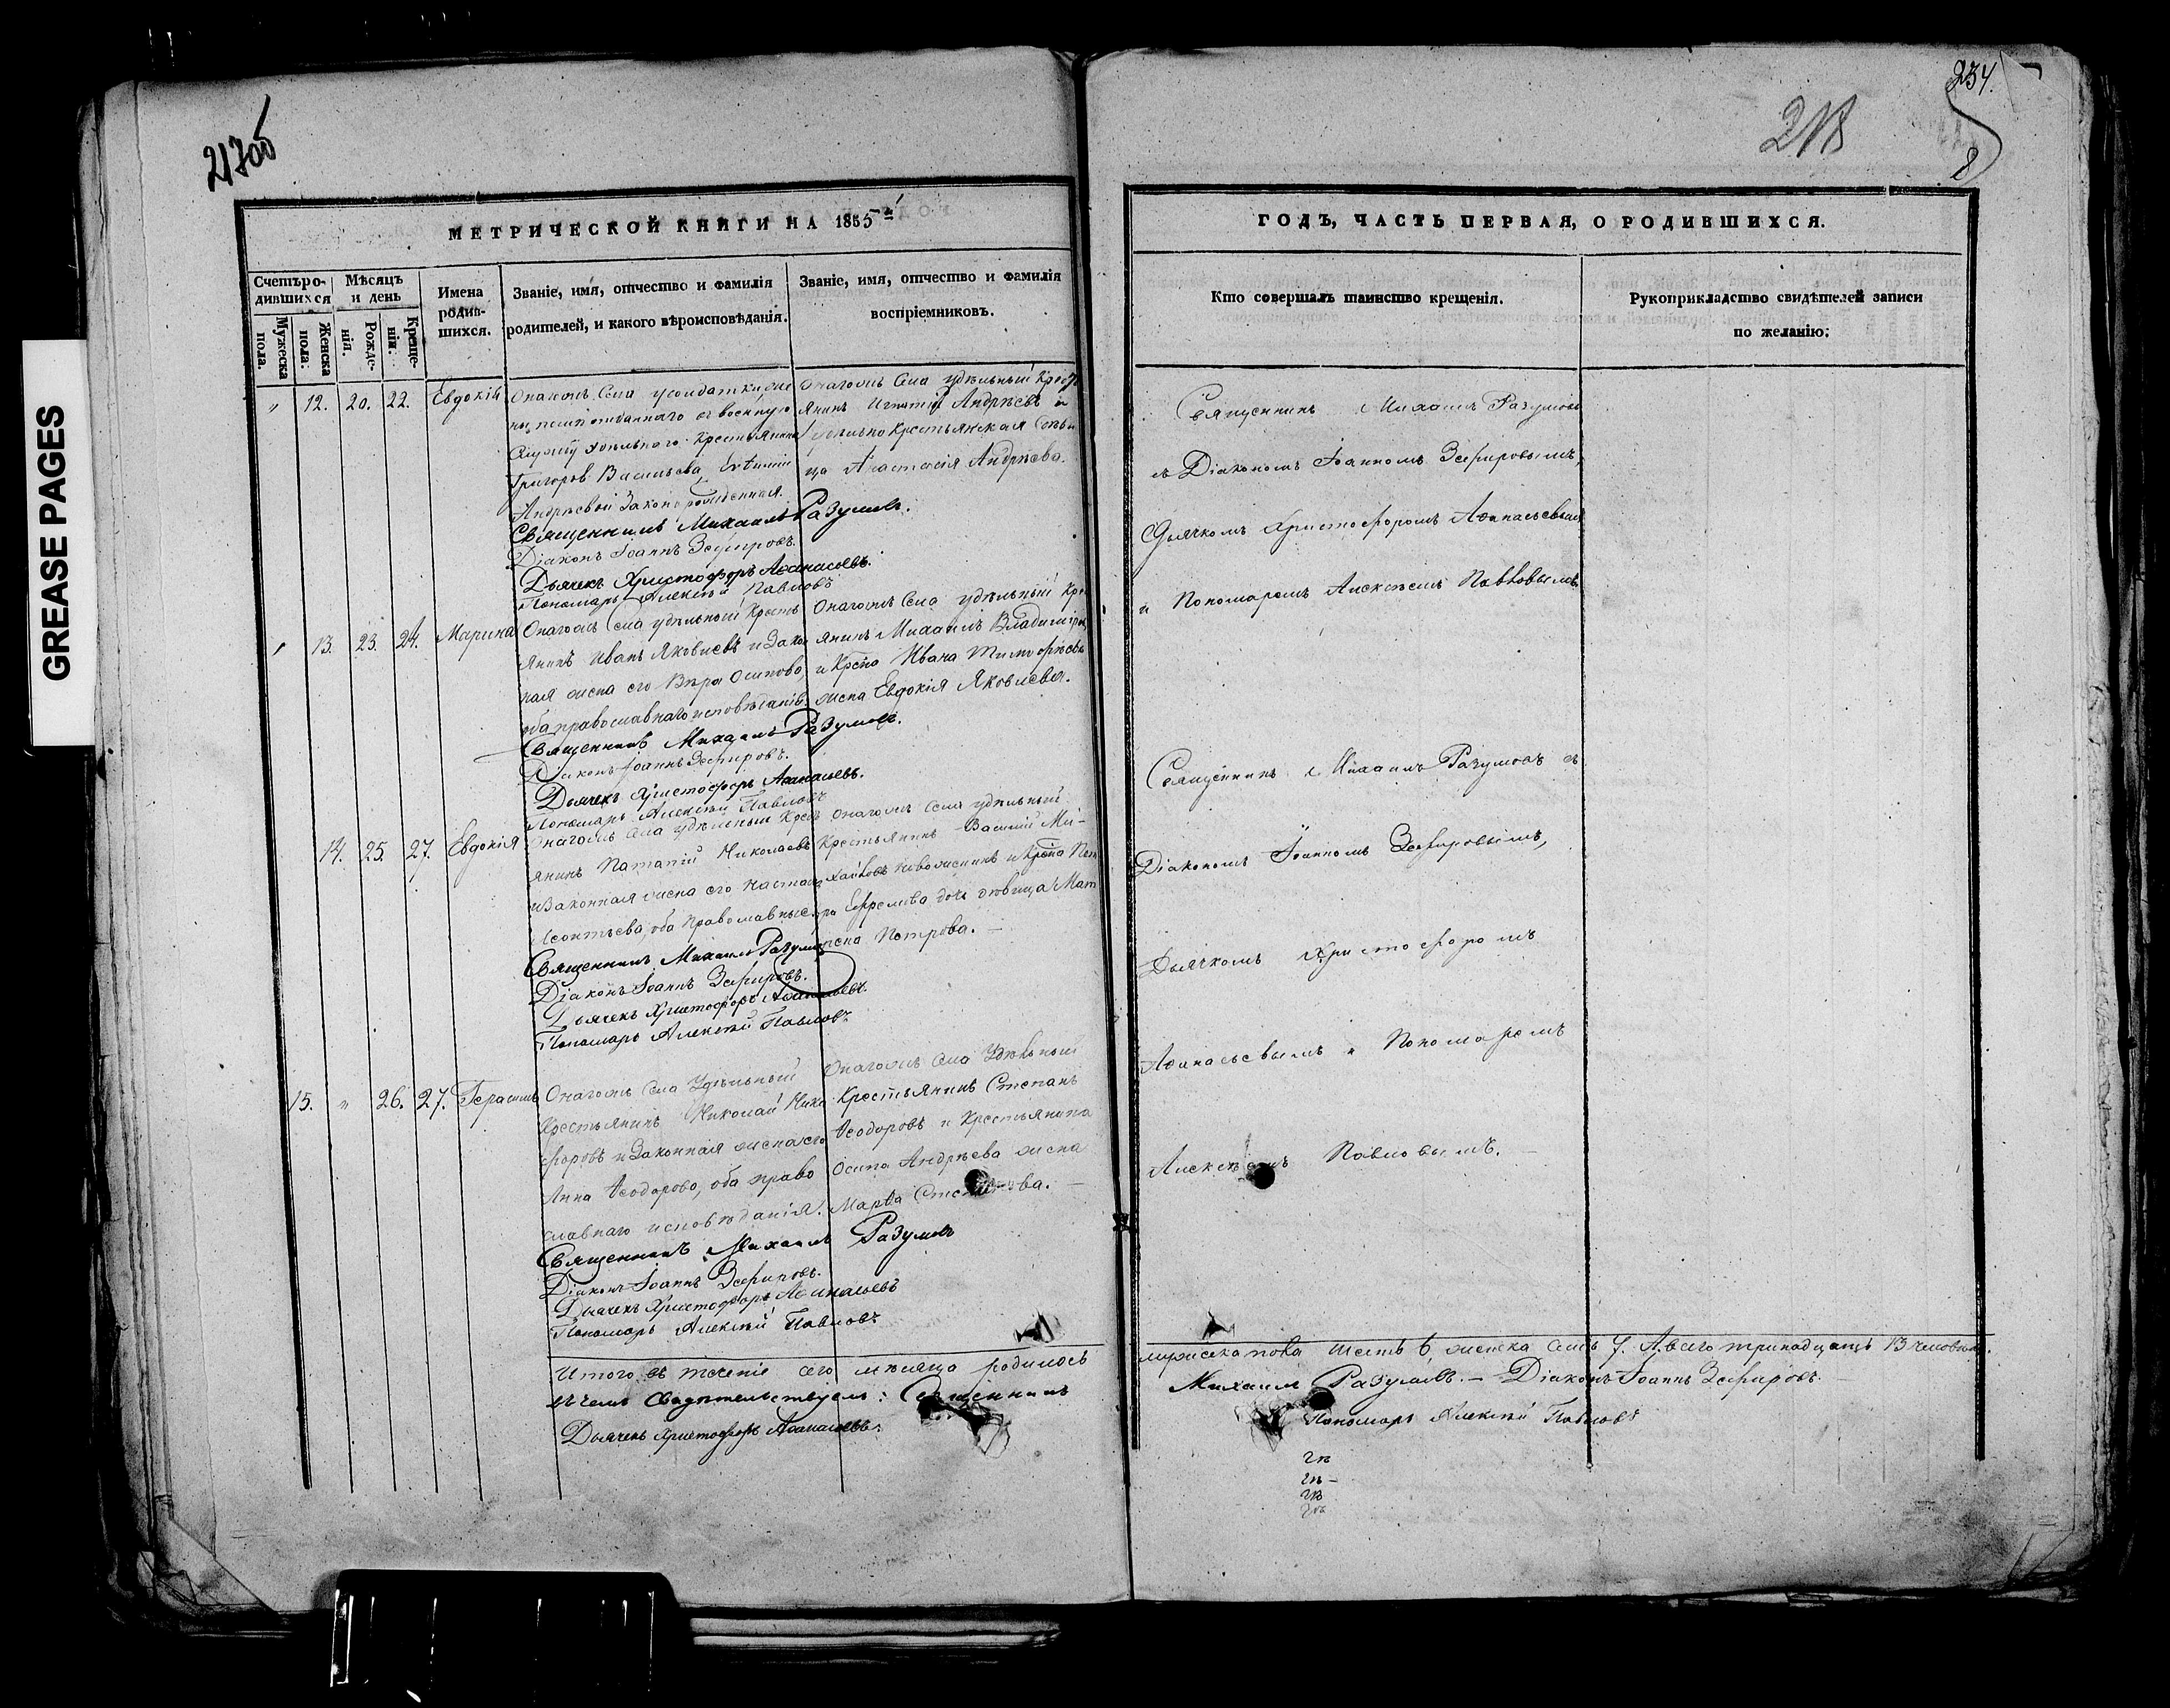 GREASE PAGES
217об
234.
218
МЕТРИЧЕСКОЙ КНИГИ НА 1855й
ГОДЪ, ЧАСТЬ ПЕРВАЯ, О РОДИВШИХСЯ.
Счетъ родившихся
Мѣсяцъ и день
Имена родившихся.
Званіе, имя, отчество и фамилія
родителей, и какого вѣроисповѣданія.
Званіе, имя, отчество и фамилія
воспріемниковъ.
Мужеска пола.
Женска пола.
Рожденія.
Крещенія.
Кто совершалъ таинство крещенія.
Рукоприкладство свидѣтелей записи
по желанію.
" 12. 20. 22. Евдокія
Онагожъ Села
службу удѣльнаго крестьянина
Григорья Васильева,
Андрѣевой законорожденная.
Онагожъ Села удѣльный Крест
янинъ Игнатій Андрѣевъ и
ца Анастасія Андрѣева.
Священникъ Михаилъ Разумовъ.
Діаконъ Іоаннъ Зефировъ.
Дьячекъ Христофоръ Аѳанасьевъ.
Пономарь Алексѣй Павловъ
13. 23. 24. Марина
Онагожъ Села удѣльный Кресть
янинъ Иванъ Яковлевъ и закон
ная жена его Вѣра Осипова,
оба православнаго исповѣданія.
Онагожъ Села удѣльный Кре
янинъ Михаилъ Владимировъ
и Крена Ивана Тимофѣева
жена Евдокія Яковлева.
Священникъ Михаилъ Разумовъ.
Діаконъ Іоаннъ Зефировъ.
Дьячекъ Христофоръ Аѳанасьевъ.
Пономарь Алексѣй Павловъ
14. 25. 27. Евдокія
Онагожъ Села удѣльный Крест
янинъ Ипатій Николаевъ
и Законная жена его Настасья
Леонтьева, оба Православные.
Онагожъ Села удѣльный
Крестьянинъ Василій Ми-
Ефремова дочь дѣвица Мат
рена Петрова. —
Священникъ Михаилъ Разумовъ
Діаконъ Іоаннъ Зефировъ.
Дьячекъ Христофоръ Аѳанасьевъ.
Пономарь Алексѣй Павловъ
15. " 26. 27. Герасимъ
Онагожъ Села Удѣльный
Крестьянинъ Николай Ники
форовъ и Законная жена его
Анна Ѳеодорова, оба право
славнаго исповѣданія.
Онагожъ Села Удѣльный
Крестьянинъ Степанъ
Ѳеодоровъ и Крестьянина
Осипа Андрѣева жена
Марѳа Степанова. —
Священникъ Михаилъ Разумовъ
Діаконъ Іоаннъ Зефировъ.
Дьячекъ Христофоръ Аѳанасьевъ
Пономарь Алексѣй Павловъ
Итого въ теченіе сего мѣсяца родилось
въ чемъ Свидѣтельствуемъ: Священникъ
Дьячекъ Христофоръ Аѳанасьевъ.
Священникъ Михаилъ Разумовъ
съ Діакономъ Іоанномъ Зефировымъ,
Дьячкомъ Христофоромъ Аѳанасьевымъ
и Пономаремъ Алексѣемъ Павловымъ
Священникъ Михаилъ Разумовъ съ
Діакономъ Іоанномъ Зефировымъ,
Дьячкомъ Христофоромъ
Аѳанасьевымъ и Пономаремъ
Алексѣемъ Павловымъ.
мужеска пола шесть 6, женска семь 7. А всего тринадцать 13 человѣкъ.
Михаилъ Разумовъ. — Діаконъ Іоаннъ Зефировъ.
Пономарь Алексѣй Павловъ